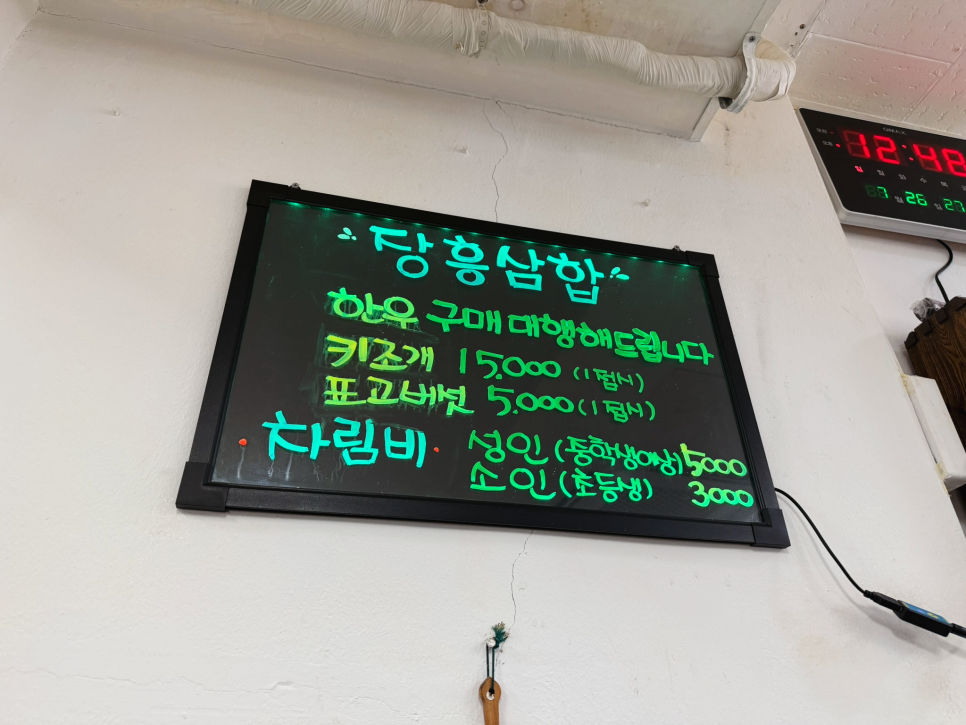 장흥삼합
한우 구매 대행해드립니다
키조개 15,000 (1접시)
표고버섯 5,000 (1접시)
차림비 성인 (중학생이상) 5000
소인 (초등생) 3000
OMAX
12:48
7 월 26 일 27